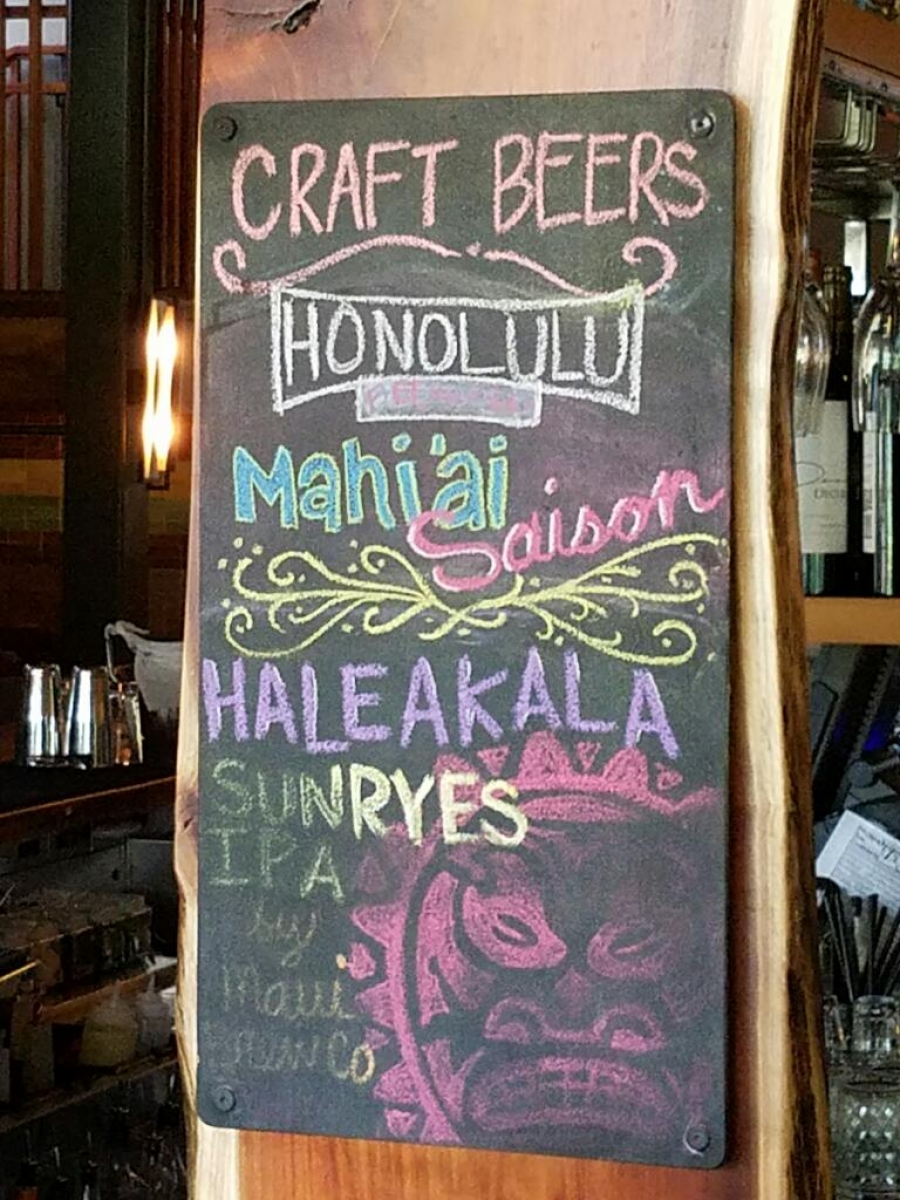 CRAFT BEERS
HONOLULU
Mahi'ai
Saison
HALEAKALA
SUNRYES
IPA
by
Maui